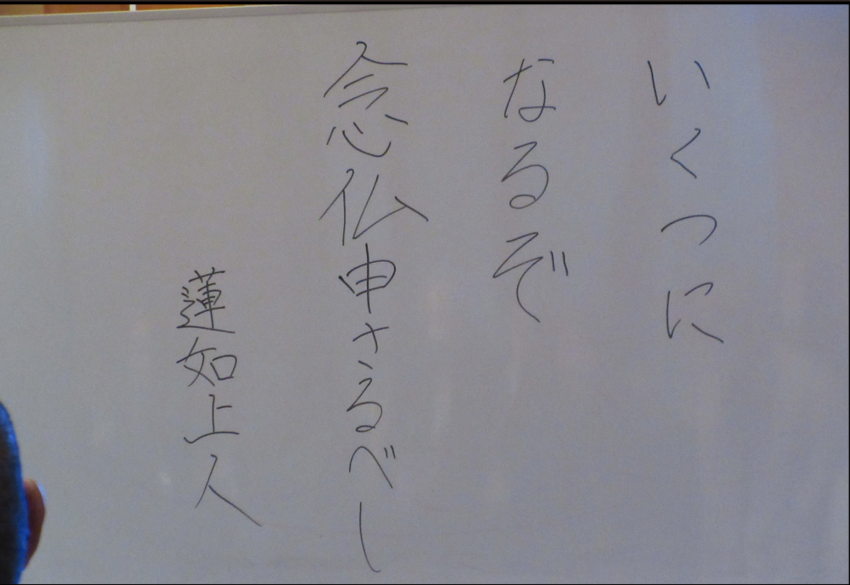 いくつに
なるぞ
念仏申さるべし
蓮如上人